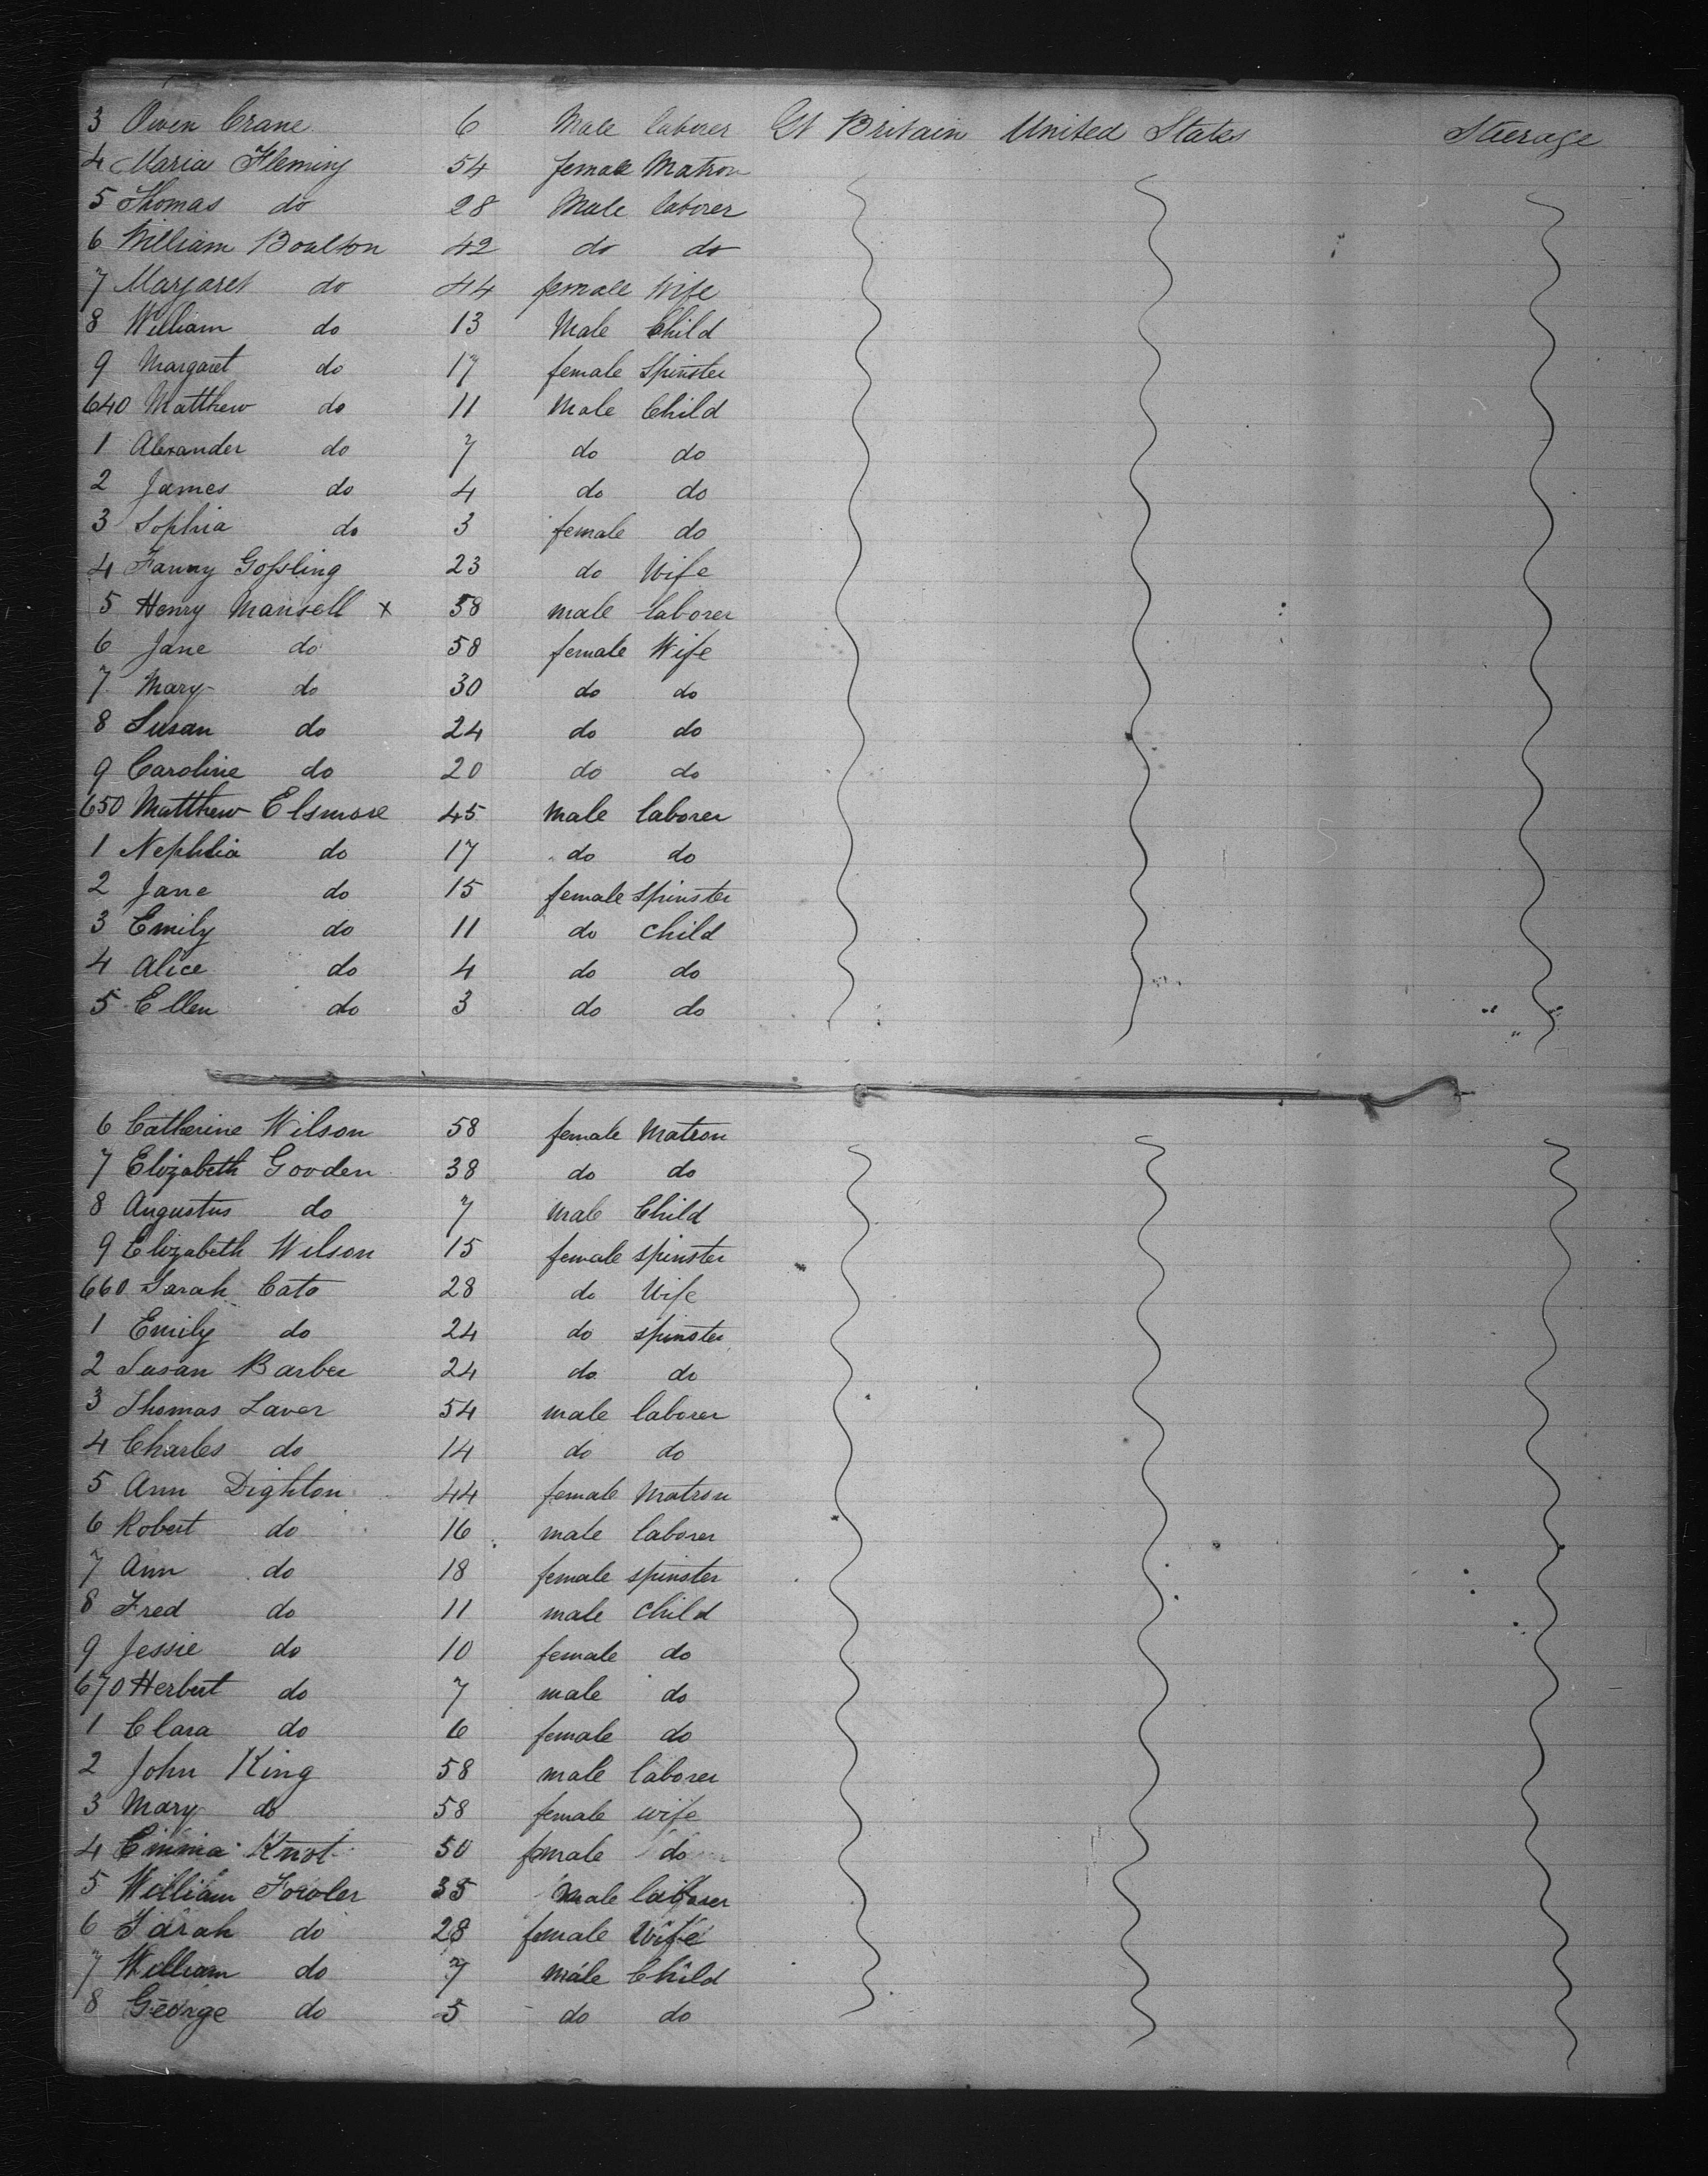 3 Owen Crane 6 Male laborer Gt Britain United States Steerage
4 Maria Fleming 54 female Matron
5 Thomas do 28 Male laborer
6 William Boulton 42 do do
7 Margaret do 44 female Wife
8 William do 13 Male Child
9 Margaret do 17 female Spinster
640 Matthew do 11 Male Child
1 Alexander do 7 do do
2 James do 4 do do
3 Sophia do 3 female do
4 Fanny Goſsling 23 do Wife
5 Henry Mansell x 58 male laborer
6 Jane do 58 female Wife
7 Mary do 30 do do
8 Susan do 24 do do
9 Caroline do 20 do do
650 Matthew Elsmore 45 male laborer
1 Nephlia do 17 do do
2 Jane do 15 female Spinster
3 Emily do 11 do child
4 Alice do 4 do do
5 Ellen do 3 do do
6 Catherine Wilson 58 female Matron
7 Elizabeth Gooden 38 do do
8 Augustus do 7 male Child
9 Elizabeth Wilson 15 female spinster
660 Sarah Cato 28 do Wife
1 Emily do 24 do spinster
2 Susan Barber 24 do do
3 Thomas Laver 54 male laborer
4 Charles do 14 do do
5 Ann Dighton 44 female Matron
6 Robert do 16 male laborer
7 Ann do 18 female spinster
8 Fred do 11 male child
9 Jessie do 10 female do
670 Herbert do 7 male do
1 Clara do 6 female do
2 John King 58 male laborer
3 Mary do 58 female wife
4 Emma Knot 50 female do
5 William Fowler 35 male laborer
6 Sarah do 28 female Wife
7 William do 7 male Child
8 George do 5 do do